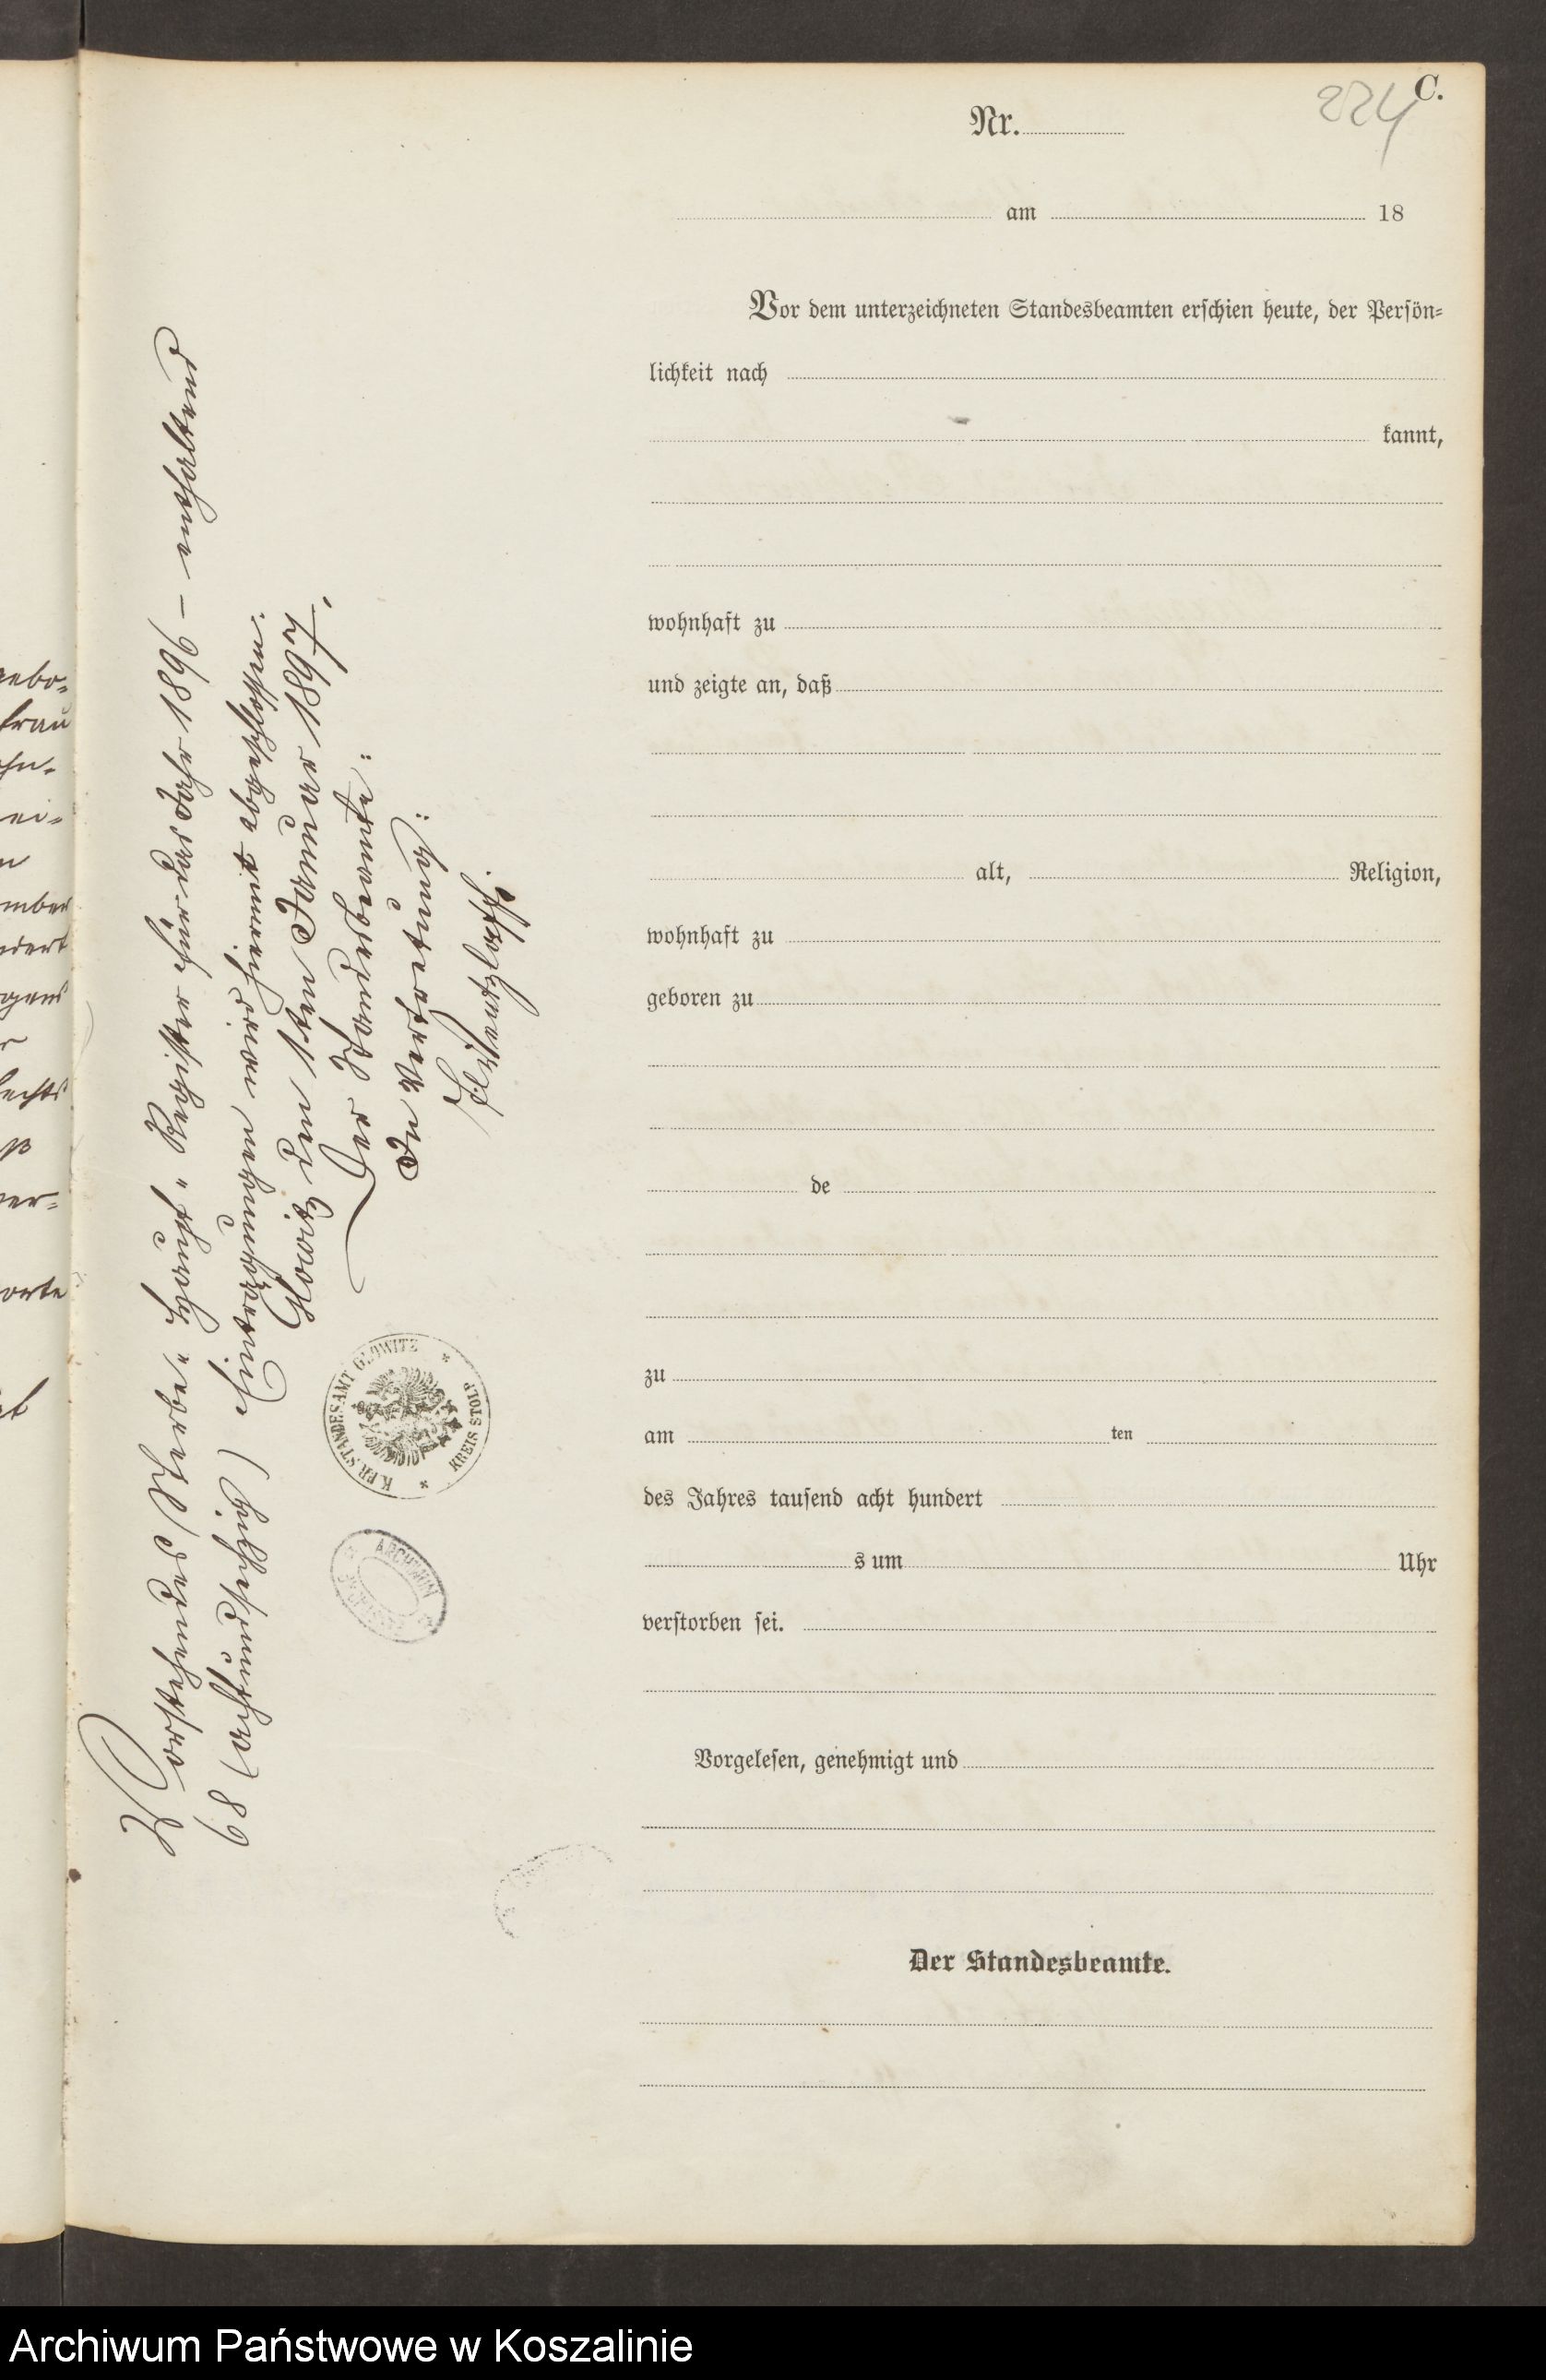 C.
224
Nr.
am 18
Vor dem unterzeichneten Standesbeamten erschien heute, der Persön=
lichkeit nach
kannt,
wohnhaft zu
und zeigte an, daß
alt, Religion,
wohnhaft zu
geboren zu
de
zu
am ten
des Jahres tausend acht hundert
s um Uhr
verstorben sei.
Vorgelesen, genehmigt und
Der Standesbeamte.
Vorstehendes Sterbe- Haupt- Register für das Jahr 1896 – enthaltend
68 (achtundsechzig) Eintragungen, wird hiermit abgeschlossen.
Glowitz den 1ten Januar 1897.
Der Standesbeamte:
In Vertretung:
K. PR. STANDESAMT GLOWITZ
KREIS STOLP
ARCHIWUM
gebo=
frau
ei=
n
mber
dert
gens
r
echts
ß
ver=
orte
Archiwum Państwowe w Koszalinie